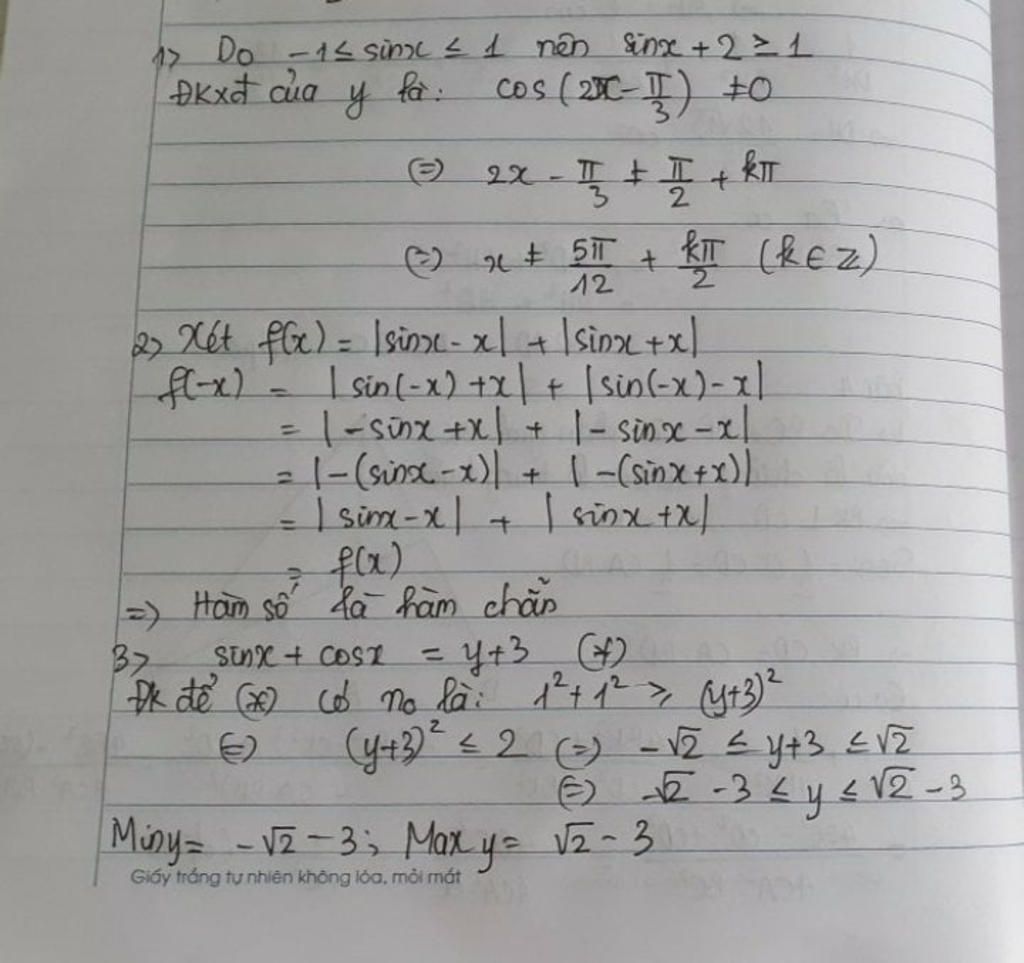 1> Do -1 ≤ sinx ≤ 1 nên sinx + 2 ≥ 1
ĐKXĐ của y là: cos(2x - π/3) ≠ 0
(=) 2x - π/3 ≠ π/2 + kπ
(=) x ≠ 5π/12 + kπ/2 (k ∈ Z)
2> Xét f(x) = |sinx - x| + |sinx + x|
f(-x) = |sin(-x) + x| + |sin(-x) - x|
= |-sinx + x| + |-sinx - x|
= |-(sinx - x)| + |-(sinx + x)|
= |sinx - x| + |sinx + x|
= f(x)
=> Hàm số là hàm chẵn
3> sinx + cosx = y + 3 (*)
Đk để (*) có no là: 1² + 1² ≥ (y+3)²
(=) (y+3)² ≤ 2 (=) -√2 ≤ y+3 ≤ √2
(=) -√2 - 3 ≤ y ≤ √2 - 3
Miny = -√2 - 3; Max y = √2 - 3
Giấy trắng tự nhiên không lóa, mỏi mắt